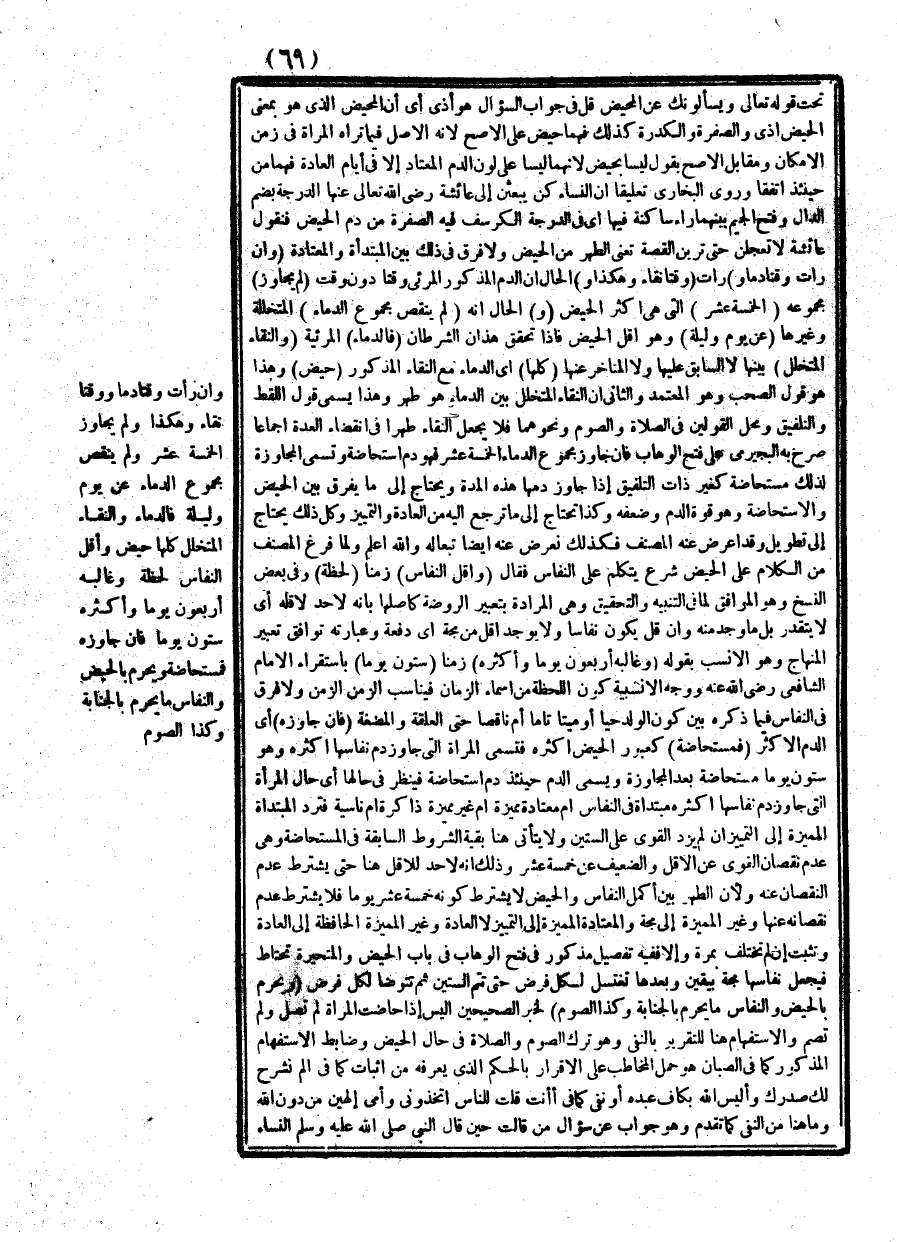 (٦٩)
تحت قوله تعالى ويسألونك عن المحيض قل فى جواب السؤال هو أذى أى أن المحيض الذى هو بمعنى
الحيض اذى والصفرة والكدرة كذلك فهما حيض على الاصح لانه الاصل فيما تراه المراة فى زمن
الامكان ومقابل الاصح يقول ليسا بحيض لانهما ليسا على لون الدم المعتاد إلا فى أيام العادة فهما من
حينئذ اتفقا وروى البخارى تعليقا ان النساء كن يبعثن إلى عائشة رضى الله تعالى عنها الدرجة بضم
الدال وفتح الجيم بينهما راء ساكنة فيها اى فى الدرجة الكرسف فيه الصفرة من دم الحيض فتقول
عائشة لا تعجلن حتى ترين القصة تعنى الطهر من الحيض ولا فرق فى ذلك بين المبتدأة والمعتادة (وان
رات وقتا دما و) رات (وقتا نقاء وهكذا و) الحال ان الدم المذكور المرئى وقتا دون وقت (لم يجاوز)
مجموعه (الخمسة عشر) التى هى اكثر الحيض (و) الحال انه (لم ينقص مجموع الدماء) المتخللة
وغيرها (عن يوم وليلة) وهو اقل الحيض فاذا تحقق هذان الشرطان (فالدماء) المرئية (والنقاء
المتخلل) بينها لا السابق عليها ولا المتاخر عنها (كلها) اى الدماء مع النقاء المذكور (حيض) وهذا
هو قول السحب وهو المعتمد والثانى ان النقاء المتخلل بين الدماء هو طهر وهذا يسمى قول اللقط
والتلفيق ومحل القولين فى الصلاة والصوم ونحوهما فلا يجعل النقاء طهرا فى انقضاء العدة اجماعا
صرح به البجيرمى على فتح الوهاب فان جاوز مجموع الدماء الخمسة عشر فهو دم استحاضة وتسمى المجاوزة
لذلك مستحاضة كغير ذات التلفيق إذا جاوز دمها هذه المدة ويحتاج إلى ما يفرق بين الحيض
والاستحاضة وهو قوة الدم وضعفه وكذا تحتاج إلى ما ترجع اليه من العادة والتمييز وكل ذلك يحتاج
إلى تطويل وقد اعرض عنه المصنف فكذلك نعرض عنه ايضا تبعا له والله اعلم ولما فرغ المصنف
من الكلام على الحيض شرع يتكلم على النفاس فقال (واقل النفاس) زمنا (لحظة) وفى بعض
النسخ وهو الموافق لما فى التنبيه والتحقيق وهى المرادة بتعبير الروضة كاصلها بانه لاحد لاقله أى
لا يتقدر بل ما وجد منه وان قل يكون نفاسا ولا يوجد اقل من مجة اى دفعة وعبارته توافق تعبير
المنهاج وهو الانسب بقوله (وغالبه أربعون يوما وأكثره) زمنا (ستون يوما) باستقراء الامام
الشافعى رضى الله عنه ووجه الانسبية كون اللحظة من اسماء الزمان فيناسب الزمن الزمن ولا فرق
فى النفاس فيما ذكره بين كون الولد حيا أو ميتا تاما أم ناقصا حتى العلقة والمضغة (فان جاوزه) أى
الدم الاكثر (فمستحاضة) كعبور الحيض اكثره فتسمى المراة التى جاوز دم نفاسها اكثره وهو
ستون يوما مستحاضة بعد المجاوزة ويسمى الدم حينئذ دم استحاضة فينظر فى حالها أى حال المرأة
التى جاوز دم نفاسها اكثره مبتداة فى النفاس ام معتادة مميزة ام غير مميزة ذاكرة ام ناسية فترد المبتداة
المميزة إلى التمييز ان لم يزد القوى على الستين ولا يتأتى هنا بقية الشروط السابقة فى المستحاضة وهى
عدم نقصان القوى عن الاقل والضعيف عن خمسة عشر وذلك انه لاحد للاقل هنا حتى يشترط عدم
النقصان عنه ولأن الطهر بين أكمل النفاس والحيض لا يشترط كونه خمسة عشر يوما فلا يشترط عدم
نقصانه عنها وغير المميزة إلى مجة والمعتادة المميزة إلى التمييز لا العادة وغير المميزة الحافظة إلى العادة
وتثبت إن لم تختلف بمرة وإلا ففيه تفصيل مذكور فى فتح الوهاب فى باب الحيض والمتحيرة تحتاط
فيجعل نفاسها مجة بيقين وبعدها تغتسل لكل فرض حتى تتم الستين ثم تتوضا لكل فرض (ويحرم
بالحيض والنفاس ما يحرم بالجنابة وكذا الصوم) لخبر الصحيحين اليس إذا حاضت المراة لم تصل ولم
تصم والاستفهام هنا للتقرير بالنفى وهو ترك الصوم والصلاة فى حال الحيض وضابط الاستفهام
المذكور كما فى الصبان هو حمل المخاطب على الاقرار بالحكم الذى يعرفه من اثبات كما فى الم نشرح
لك صدرك وأليس الله بكاف عبده أو نفى كما فى أأنت قلت للناس اتخذونى وأمى إلهين من دون الله
وما هنا من النفى كما تقدم وهو جواب عن سؤال من قالت حين قال النبى صلى الله عليه وسلم النساء
وان رأت وقتا دما ووقتا
نقاء وهكذا ولم يجاوز
الخمسة عشر ولم ينقص
مجموع الدماء عن يوم
وليلة فالدماء والنقاء
المتخلل كلها حيض وأقل
النفاس لحظة وغالبه
أربعون يوما وأكثره
ستون يوما فان جاوزه
فمستحاضة ويحرم بالحيض
والنفاس ما يحرم بالجنابة
وكذا الصوم